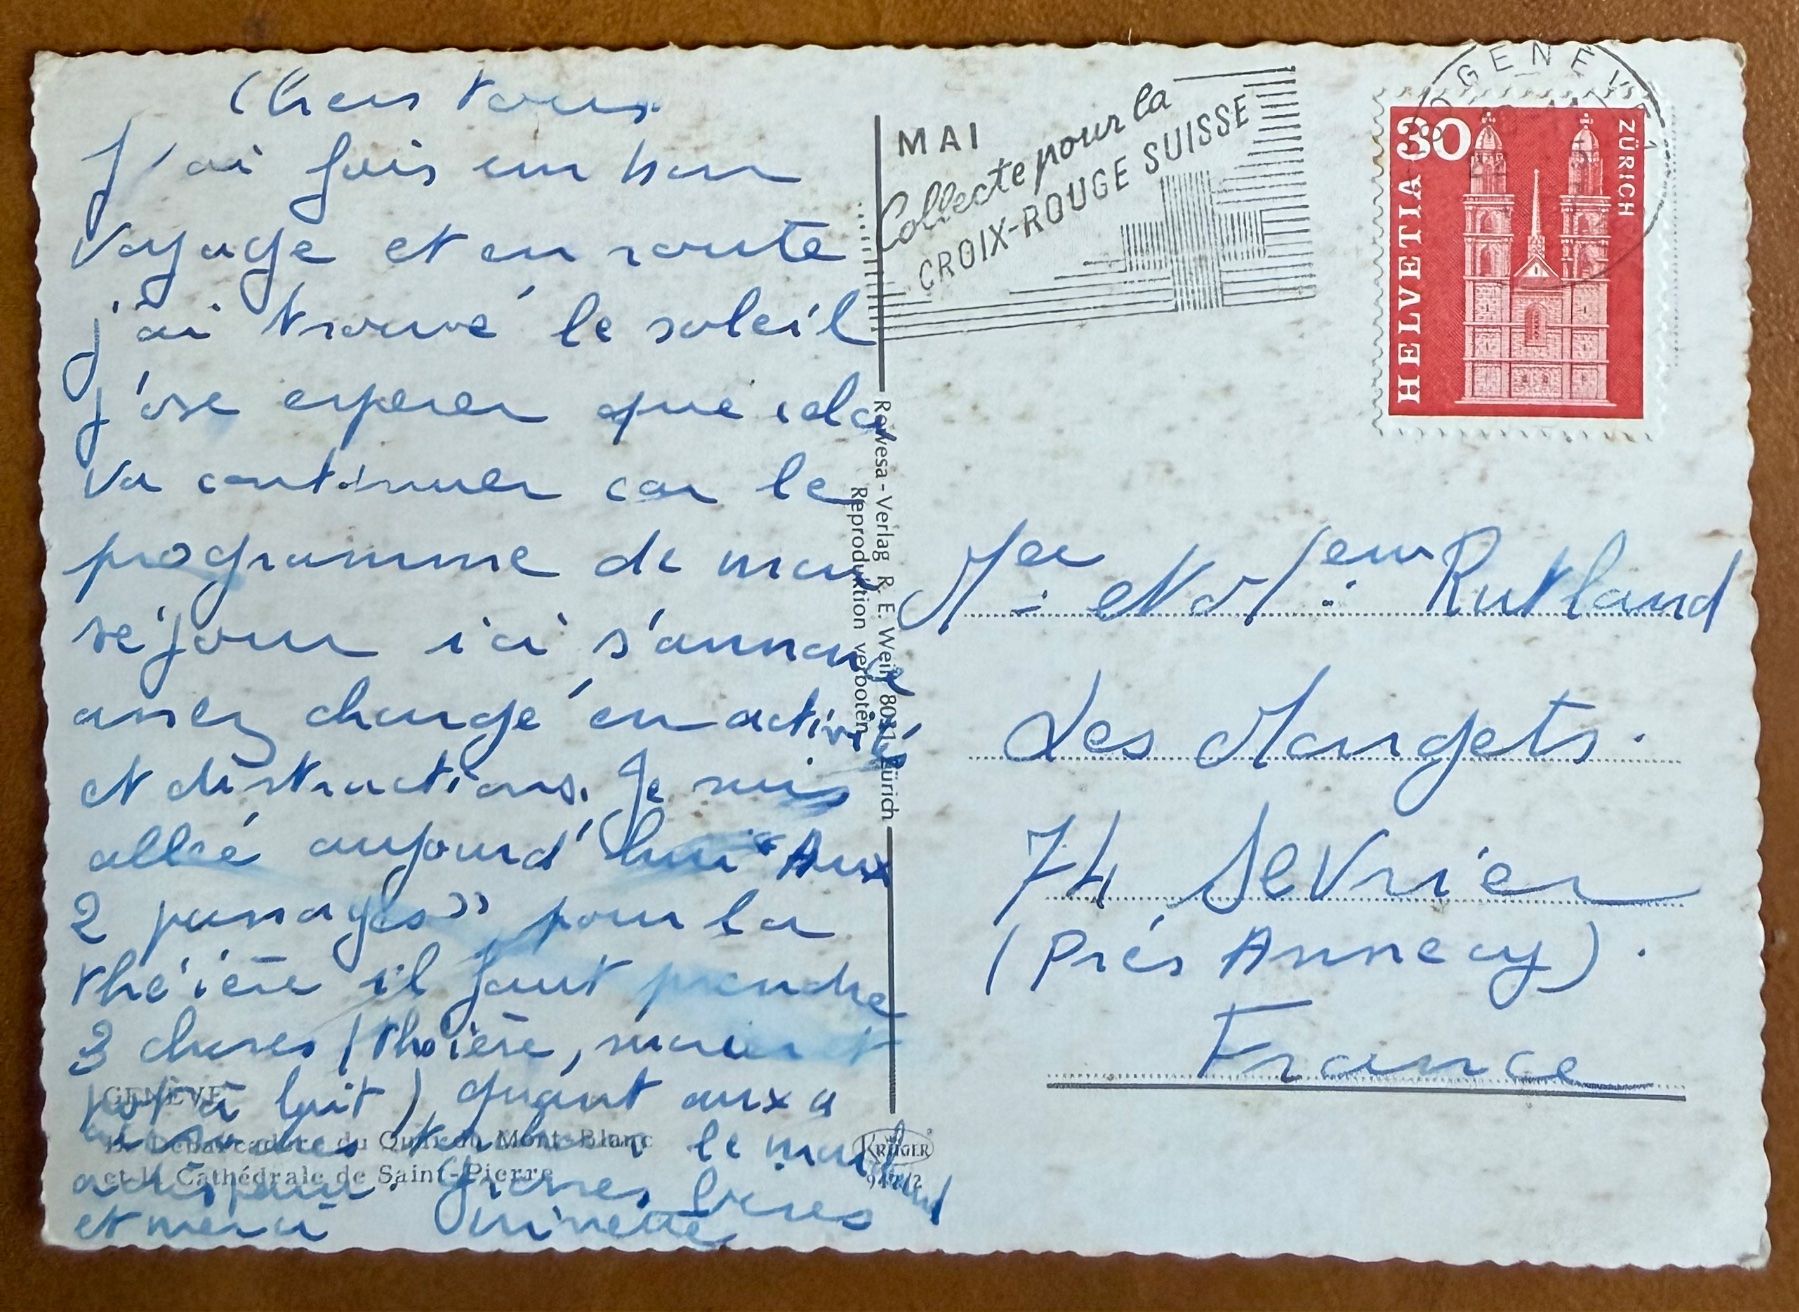 Chers tous.
J'ai fais un bon
voyage et en route
j'ai trouvé le soleil
j'ose esperer que cela
va continuer car le
programme de mon
séjour ici s'annonce
assez chargé en activités
et distractions. Je suis
allée aujourd'hui "Aux
2 passages" pour la
théière il faut prendre
3 choses (théière, sucrier et
pot à lait) quant aux
le
Grosses bises
et merci Minette
MAI
Collecte pour la
CROIX-ROUGE SUISSE
GENÈVE 1
30
HELVETIA
ZÜRICH
Rewesa - Verlag R. E. Weih, Zürich
Reproduktion verboten
Mer et Mme Rutland
Les Mongets.
74 SeVrier
(Près Annecy).
France
GENÈVE
Le Débarcadère du Quai du Mont-Blanc
et la Cathédrale de Saint-Pierre
KRÜGER